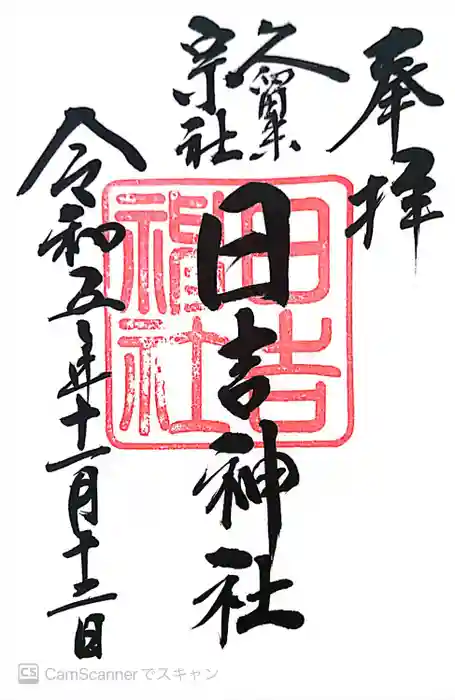 奉拝
久留米
宗社
日吉神社
日吉神社
令和五年十一月十二日
CS CamScannerでスキャン